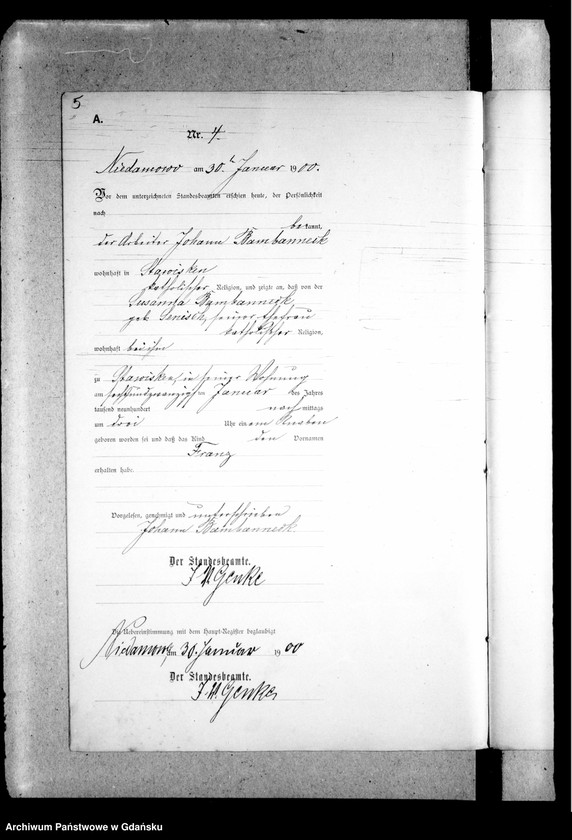 5
A.
Nr. 4.
Niedamowo am 30. Januar 1900.
Vor dem unterzeichneten Standesbeamten erschien heute, der Persönlichkeit
nach
bekannt,
der Arbeiter Johann Bambanneck
wohnhaft in Stawisken
katholischer Religion, und zeigte an, daß von der
Susanna Bambanneck,
geb. Senisch, seiner Ehefrau
katholischer Religion,
wohnhaft bei ihm
zu Stawisken, in seiner Wohnung
am sechsundzwanzigsten Januar des Jahres
tausend neunhundert nachmittags
um drei Uhr ein Knaben
geboren worden sei und daß das Kind den Vornamen
Franz
erhalten habe.
Vorgelesen, genehmigt und unterschrieben
Johann Bambanneck
Der Standesbeamte.
Genke
Die Uebereinstimmung mit dem Haupt-Register beglaubigt
Niedamowo, am 30. Januar 1900
Der Standesbeamte.
Genke
Archiwum Państwowe w Gdańsku